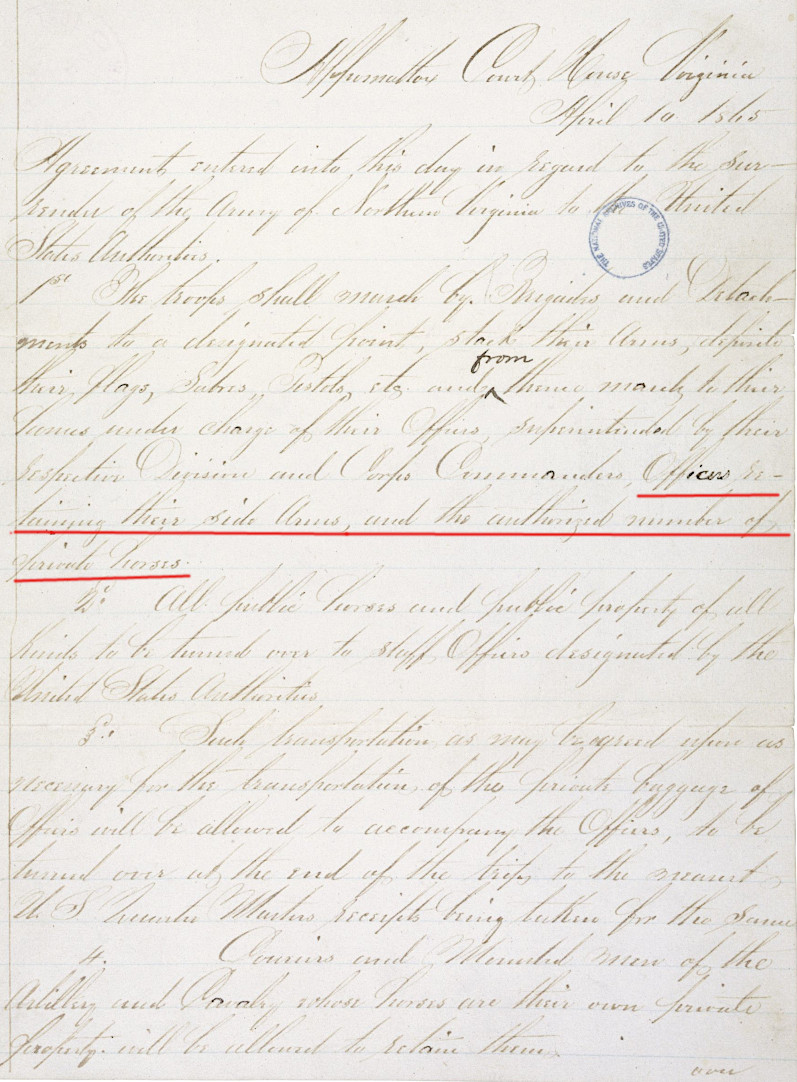 Appomattox Court House Virginia
April 10 1865
Agreement entered into this day in regard to the sur-
render of the Army of Northern Virginia to the United
States Authorities.
1st The troops shall march by Brigades and Detach-
ments to a designated point, stack their Arms, deposit
their flags, Sabres, Pistols, etc. and from thence march to their
homes under charge of their Officers, superintended by their
respective Division and Corps Commanders, Officers re-
taining their side Arms, and the authorized number of
private horses.
2d. All public horses and public property of all
kinds to be turned over to staff Officers designated by the
United States Authorities
3d. Such transportation as may be agreed upon as
necessary for the transportation of the private baggage of
Officers will be allowed to accompany the Officers, to be
turned over at the end of the trip to the nearest
U. S Quarter Masters, receipts being taken for the same
4. Couriers and Mounted men of the
Artillery and Cavalry whose horses are their own private
property will be allowed to retain them.
over
THE NATIONAL ARCHIVES OF THE UNITED STATES